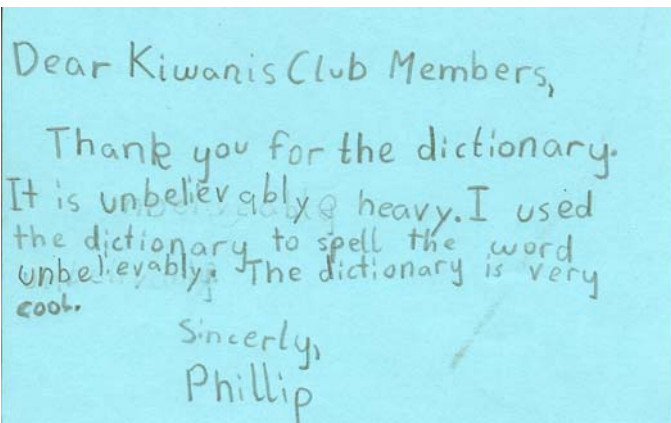 Dear Kiwanis Club Members,
Thank you for the dictionary.
It is unbelievably heavy. I used
the dictionary to spell the word
unbelievably. The dictionary is very
cool.
Sincerly,
Phillip